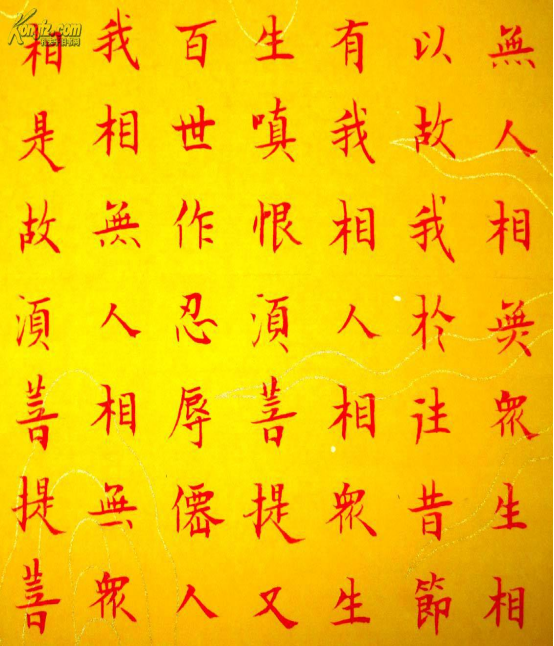 無人相無衆生相
以故我於往昔節
有我相人相衆生
生嗔恨湏菩提又
百世作忍辱僊人
我相無人相無衆
相是故湏菩提菩
Kongfz.com